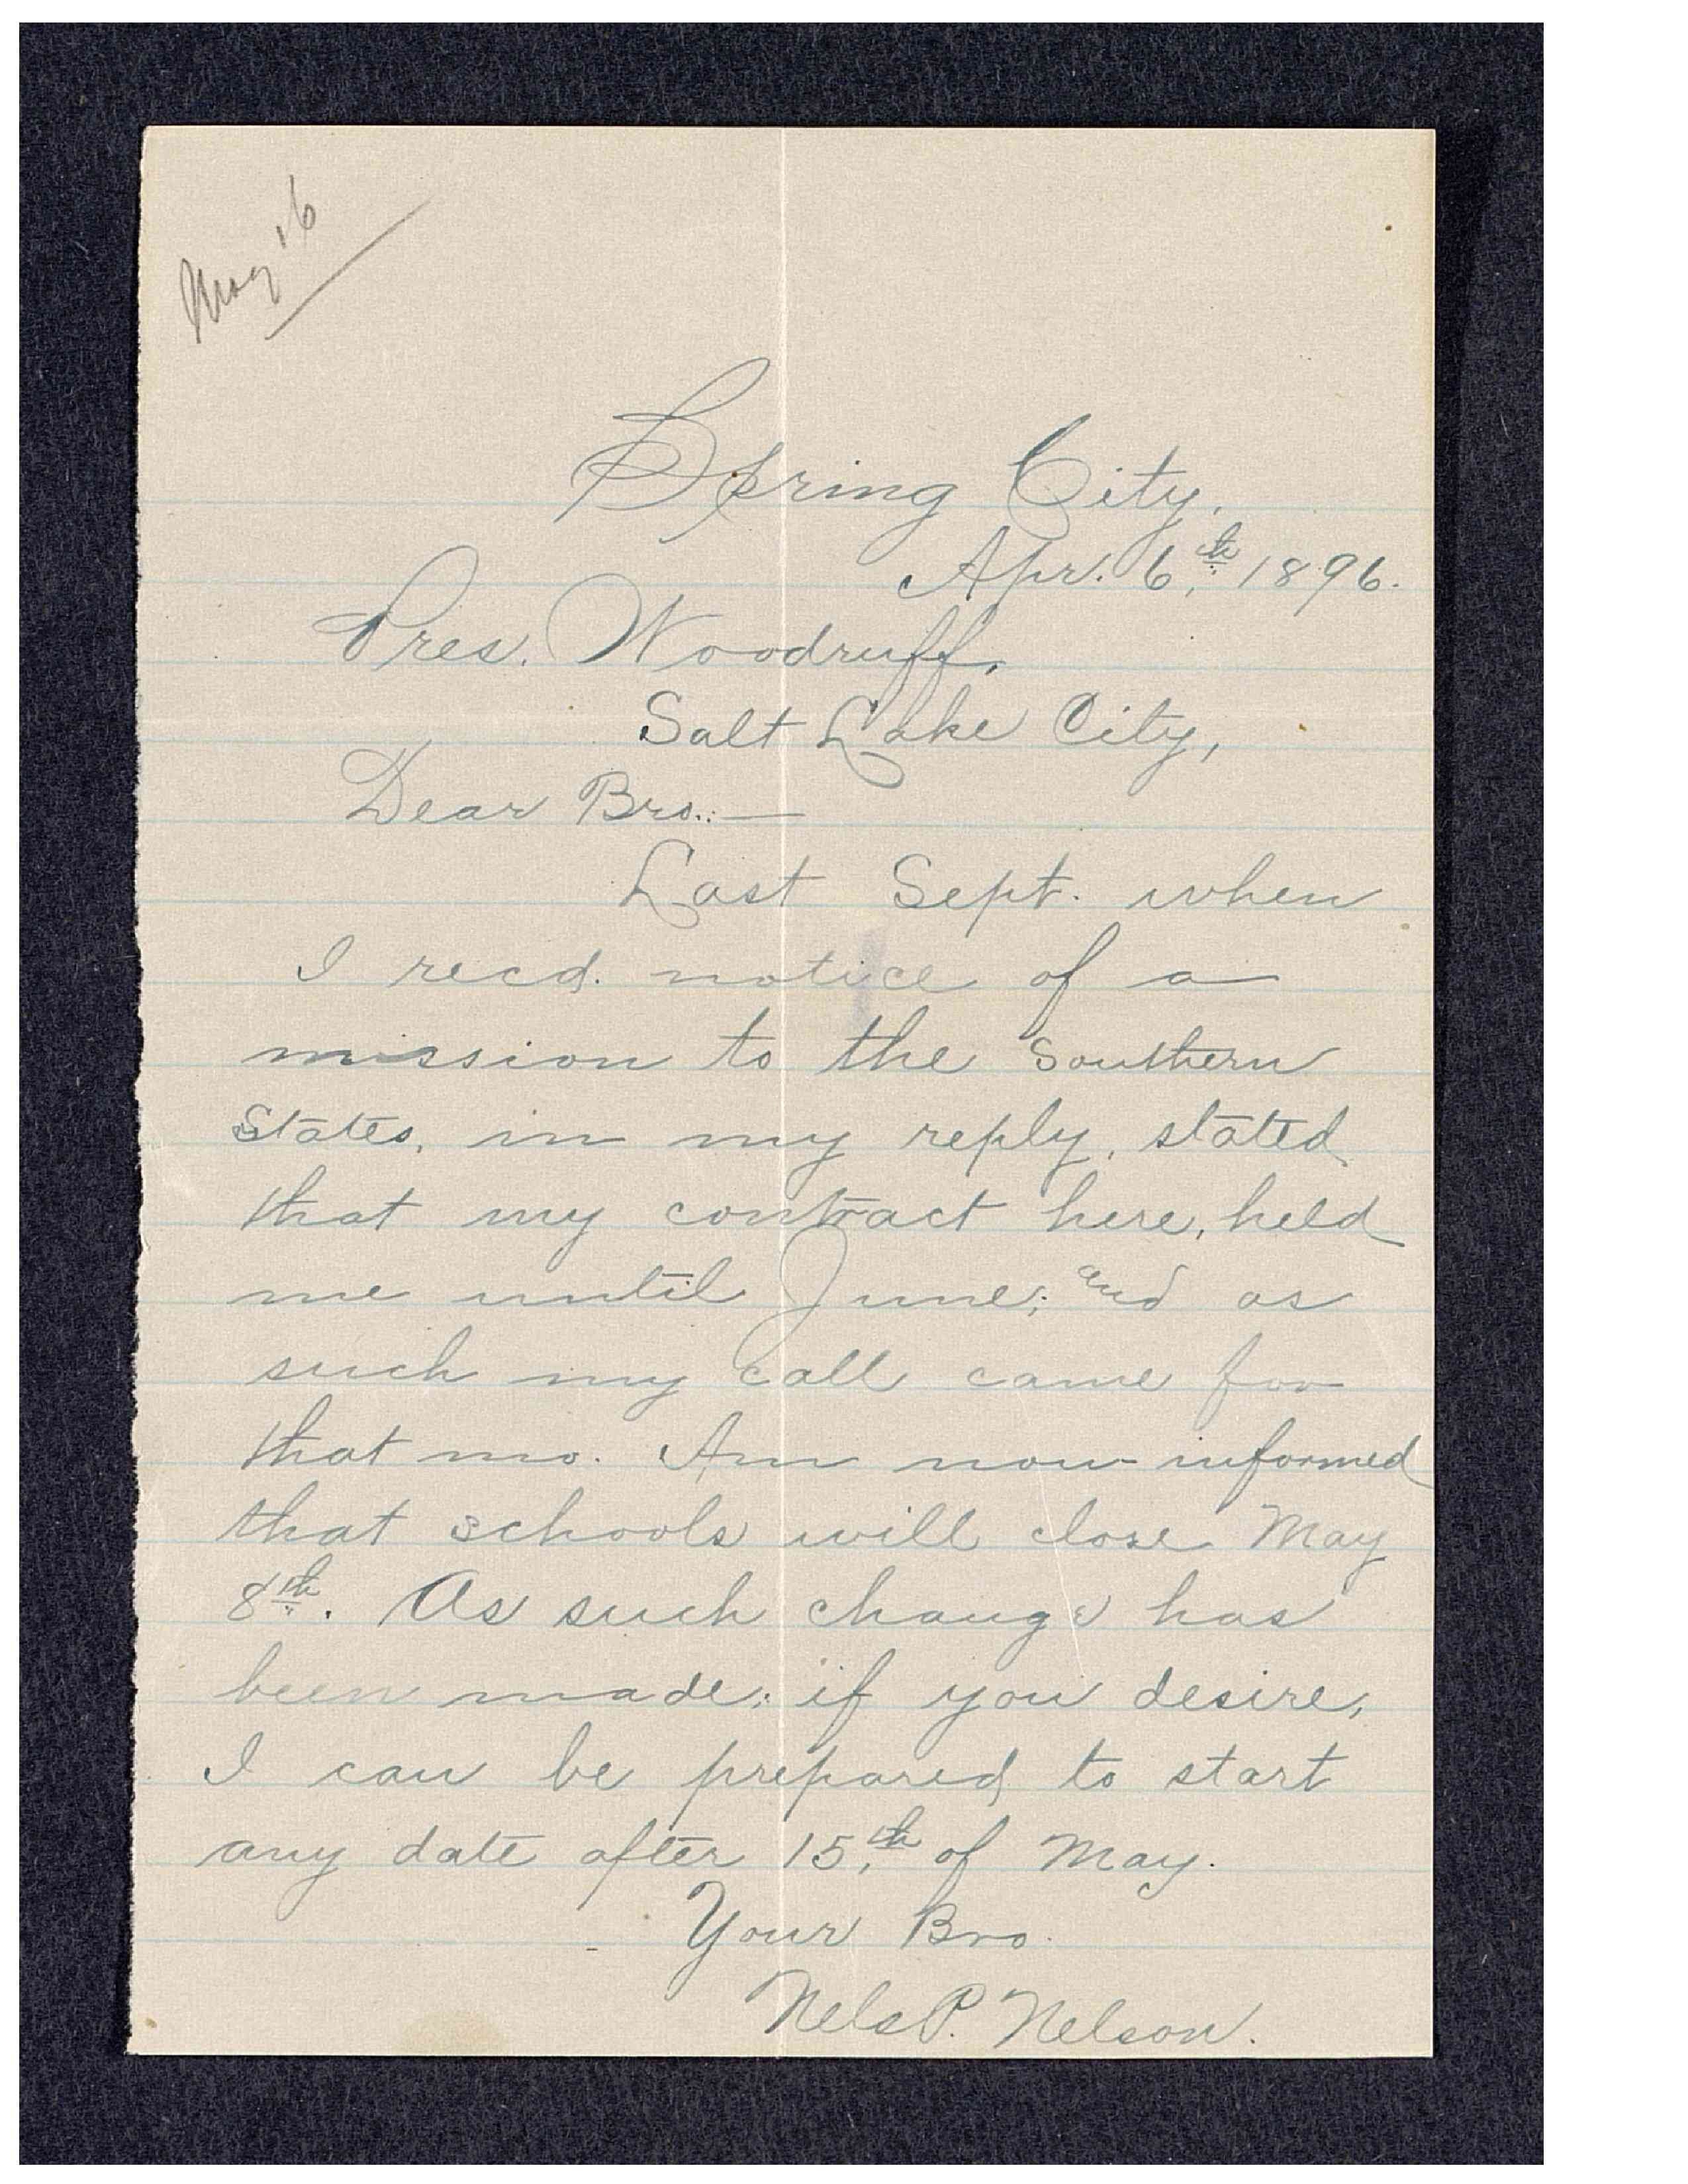 May 16
Spring City,
Apr. 6th, 1896.
Pres. Woodruff,
Salt Lake City,
Dear Bro.:—
Last Sept. when
I recd. notice of a
mission to the Southern
States, in my reply, stated
that my contract here, held
me until June; and as
such my call came for
that mo. Am now informed
that schools will close May
8th. As such change has
been made; if you desire,
I can be prepared to start
any date after 15th, of May.
Your Bro.
Nels P. Nelson.